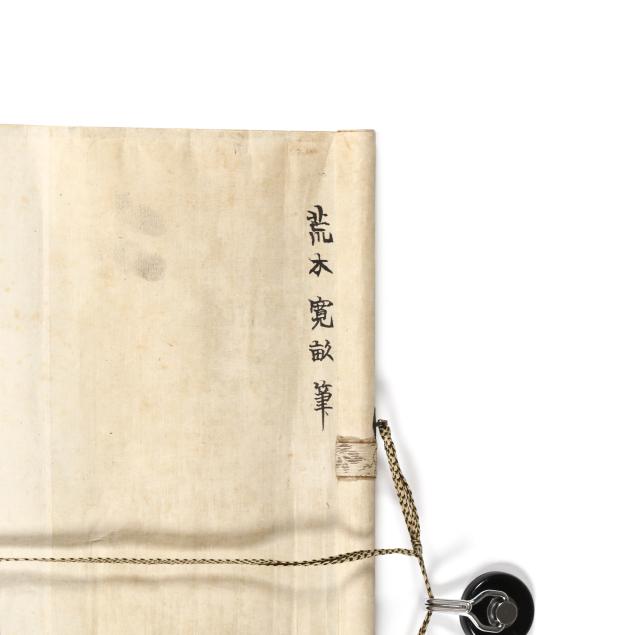 荒木寛畝筆